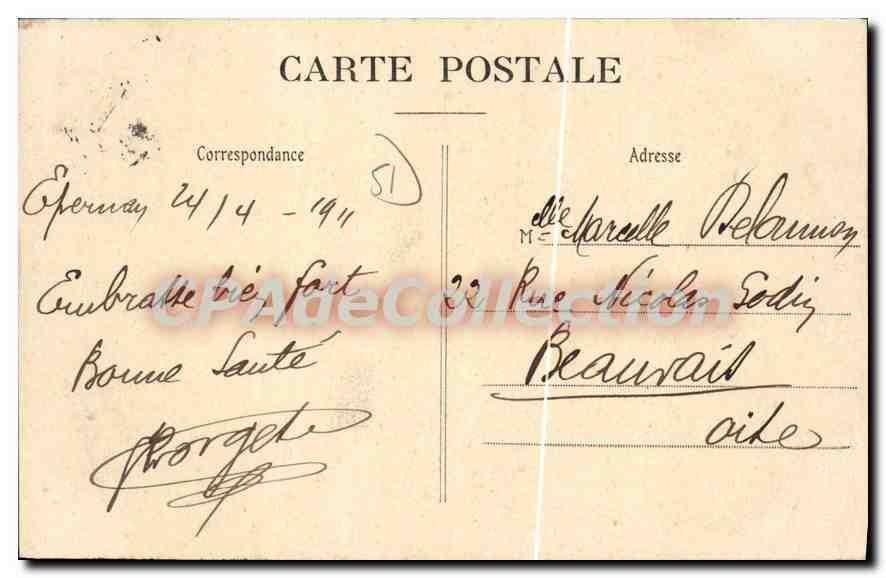 CARTE POSTALE
Correspondance
51
Epernay 24/4 - 1911
Embrasse bien fort
Bonne Santé
Georgete
Adresse
Mlle Marcelle Delaunoy
22 Rue Nicolas Godin
Beauvais
Oise
CPAdeCollection